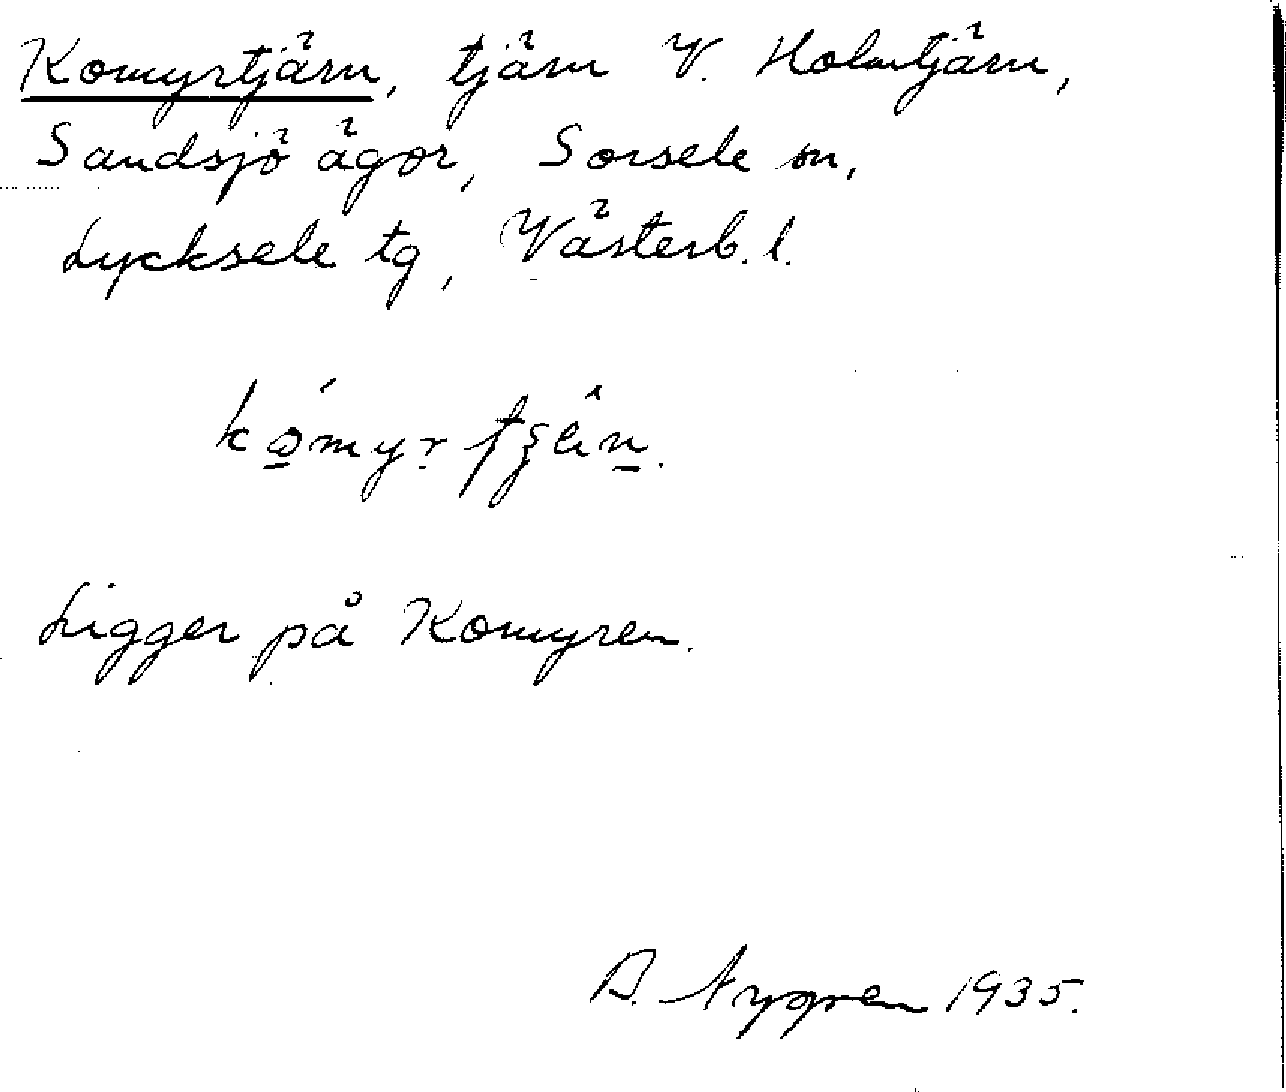 Komyrtjärn, tjärn V. Holmtjärn,
Sandsjö ägor, Sorsele sn,
Lycksele tg, Västerb. l.
Ligger på Komyren.
A. Nygren 1935.